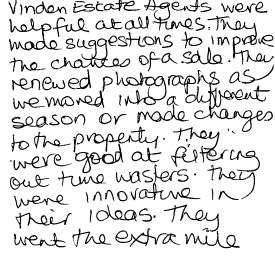 Vinden Estate Agents were
helpful at all times. They
made suggestions to improve
the chances of a sale. They
renewed photographs as
we moved into a different
season or made changes
to the property. They
were good at filtering
out time wasters. They
were innovative in
their ideas. They
went the extra mile